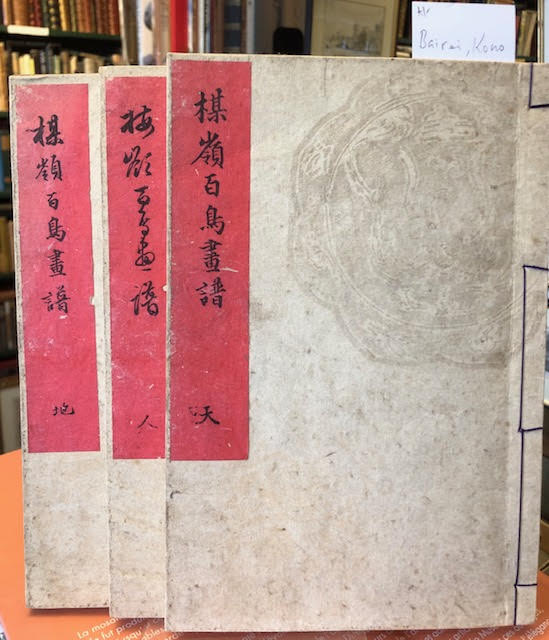 Bairei, Kono
楳嶺百鳥畫譜
天
梅嶺百鳥畫譜
人
楳嶺百鳥畫譜
地
La mosa
fut prod